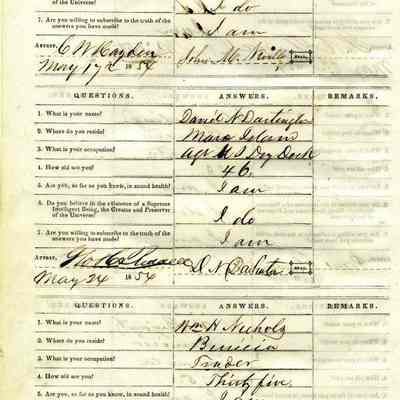 of the Universe?
I do
7. Are you willing to subscribe to the truth of the
answers you have made?
I am
ATTEST, C W Hayden
May 17th 1854
John M.
SEAL.
QUESTIONS. ANSWERS. REMARKS.
1. What is your name? David N Darlington
2. Where do you reside? Mare Island
3. What is your occupation? Agt U S Dry Dock
4. How old are you? 46.
5. Are you, so far as you know, in sound health? I am
6. Do you believe in the existence of a Supreme
Intelligent Being, the Creator and Preserver
of the Universe?
I do
7. Are you willing to subscribe to the truth of the
answers you have made?
I am
ATTEST,
May 24 1854
D. N Darlington
SEAL.
QUESTIONS. ANSWERS. REMARKS.
1. What is your name? Wm H Nichols
2. Where do you reside? Benicia
3. What is your occupation? Trader
4. How old are you? Thirty five.
5. Are you, so far as you know, in sound health? I